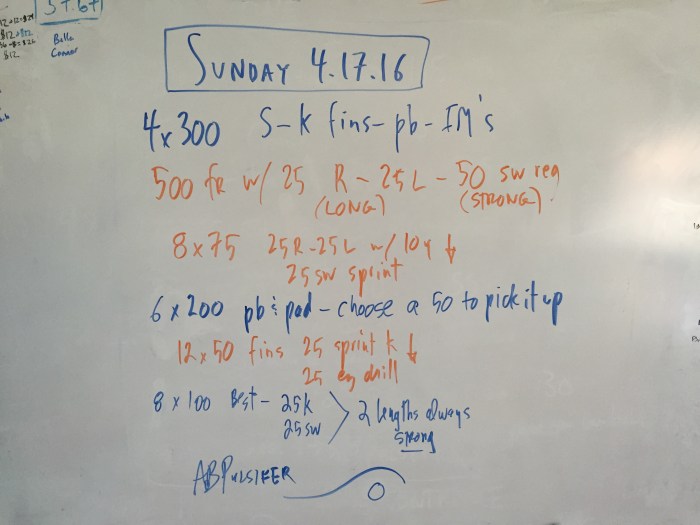 57.67
$12
Bella
Connor
SUNDAY 4.17.16
4x300 S-k fins-pb-IM's
500 fr w/ 25 R - 25 L - 50 sw reg
(LONG) (STRONG)
8x75 25R-25L w/ 10y ↓
25 sw sprint
6x200 pb & pad - choose a 50 to pick it up
12x50 fins 25 sprint k ↓
25 ez drill
8x100 Best - 25k
25sw > 2 lengths always
strong
ABPulsifer